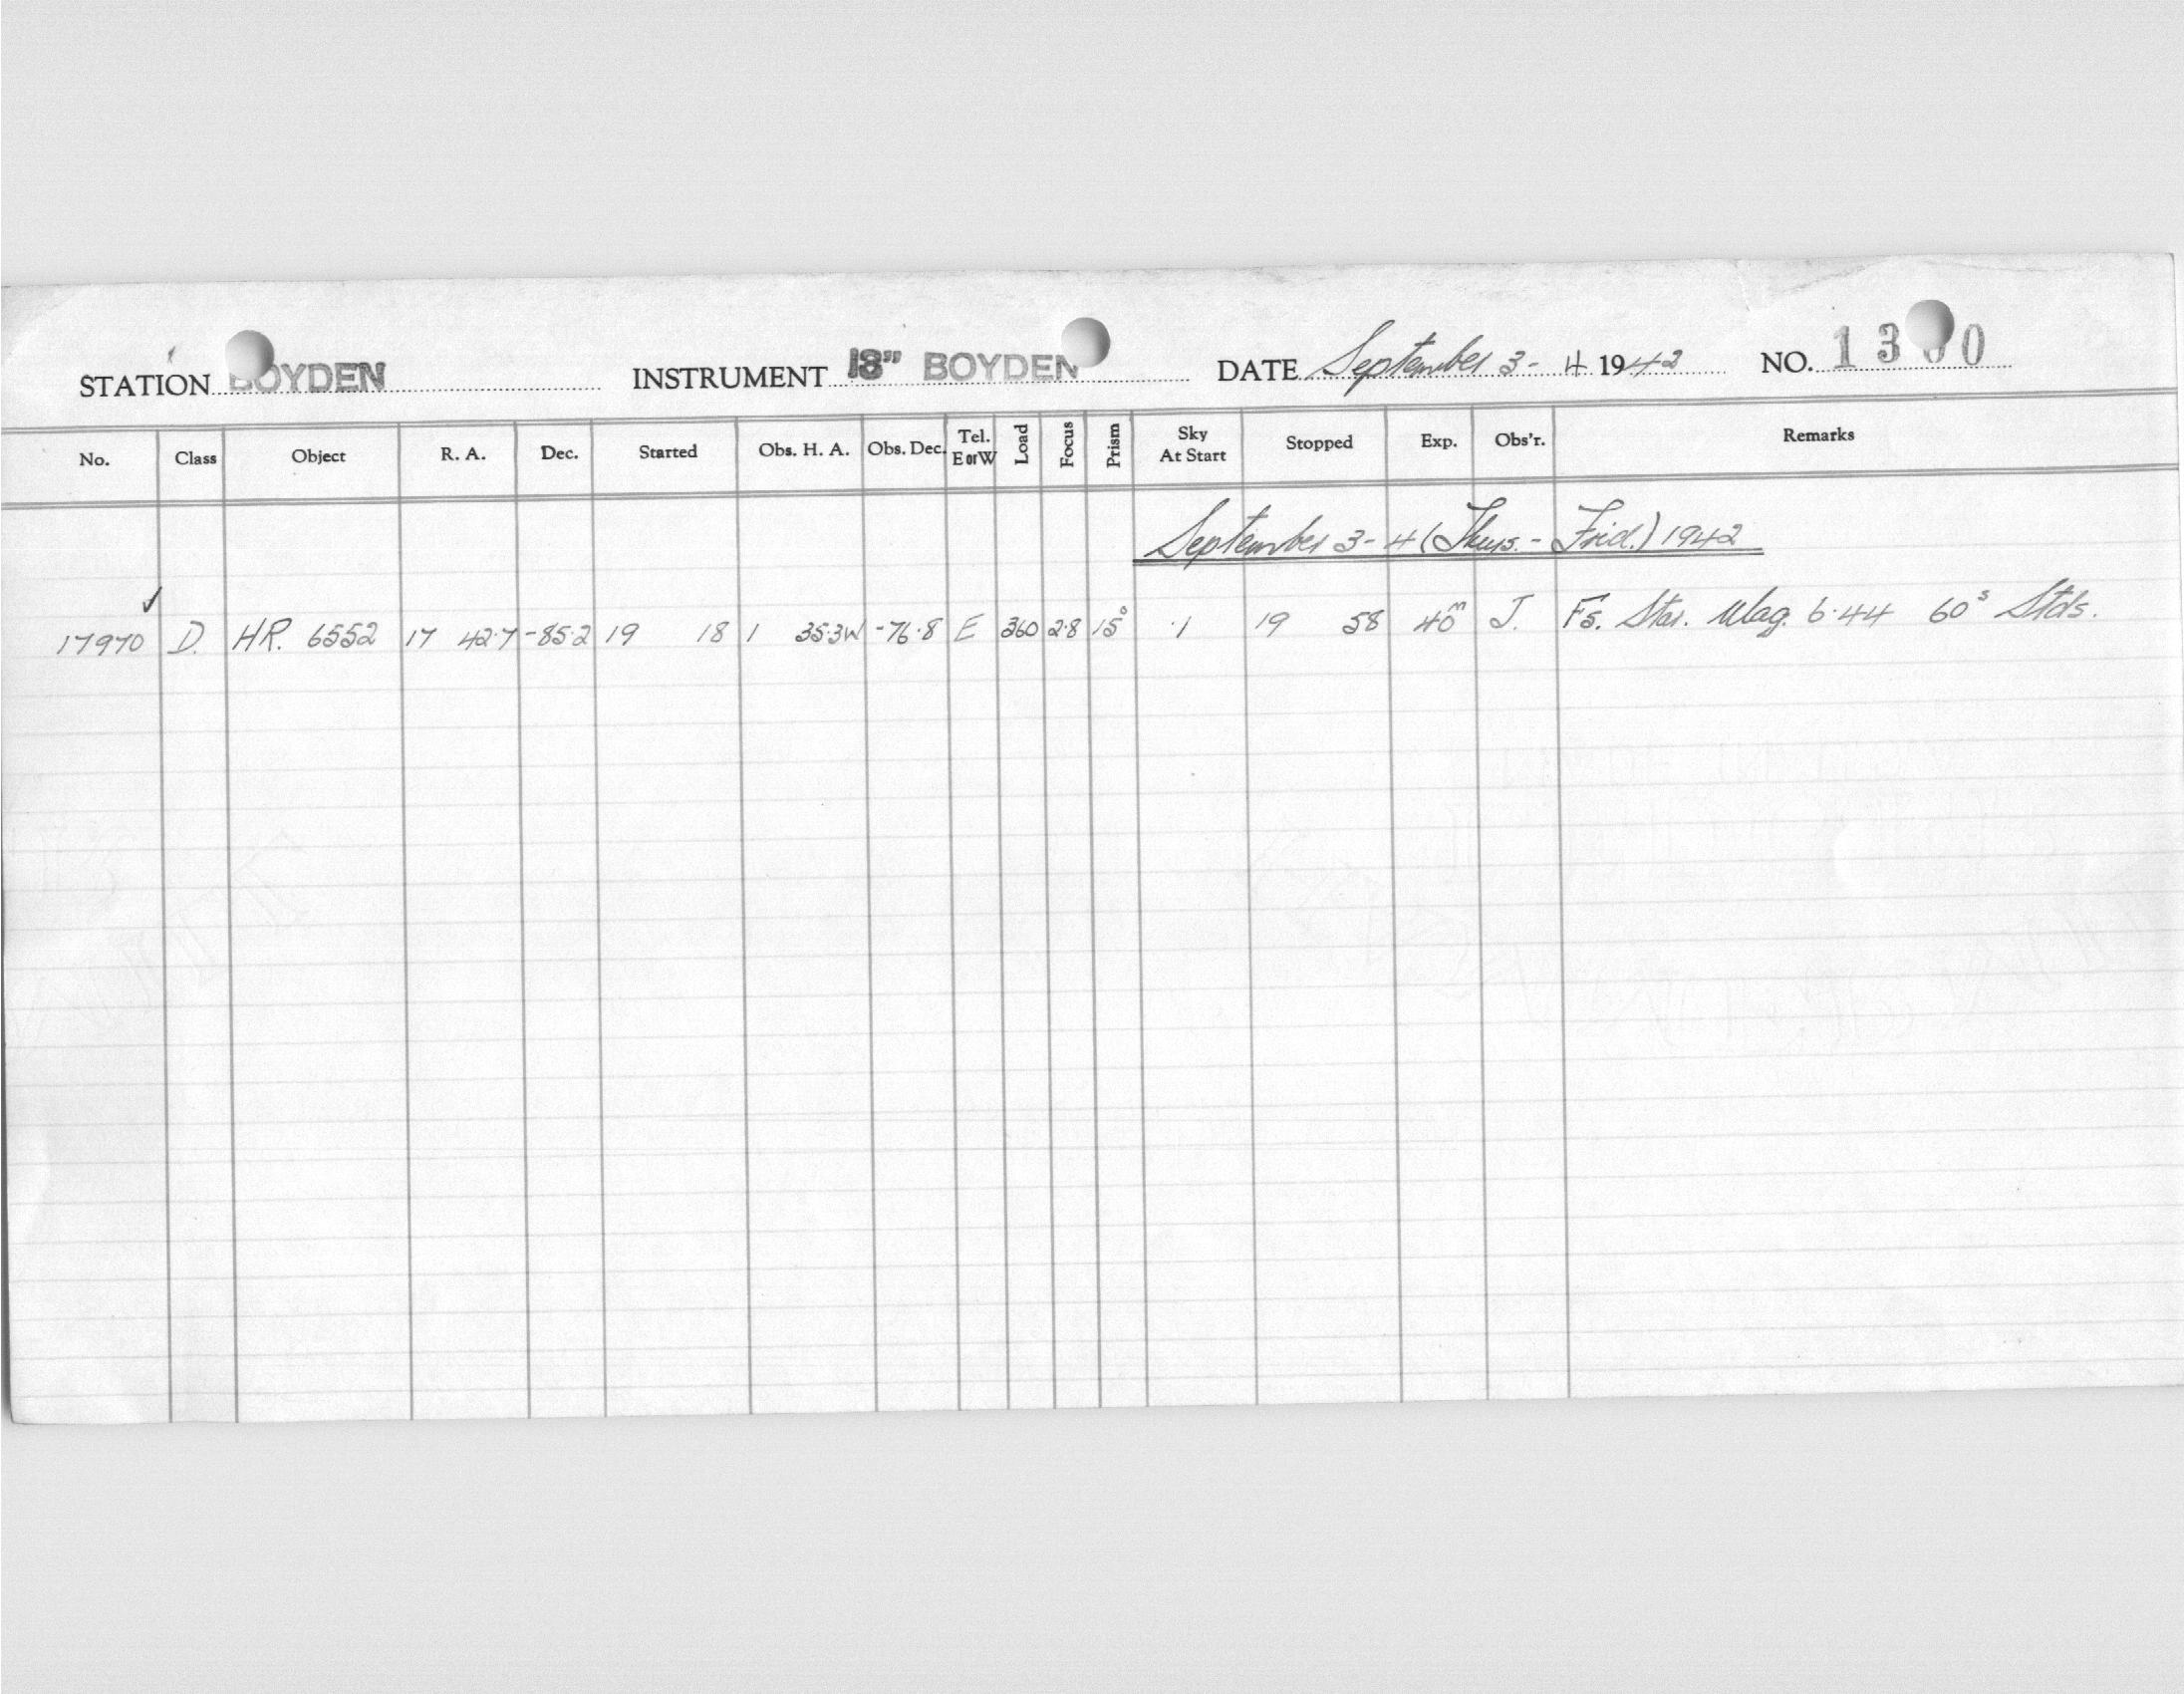 STATION BOYDEN INSTRUMENT 18" BOYDEN DATE September 3-4 1942 NO.
No. Class Object R. A. Dec. Started Obs. H. A. Obs. Dec. Tel. E or W Load Focus Prism Sky At Start Stopped Exp. Obs'r. Remarks
September 3-4 (Thurs. - Frid.) 1942
✓
17970 D. HR. 6552 17 42·7 -85·2 19 18 1 35·3W -76·8 E 360 2·8 15° ·1 19 58 40m J. Fs. Star. Mag. 6·44 60s Stds.